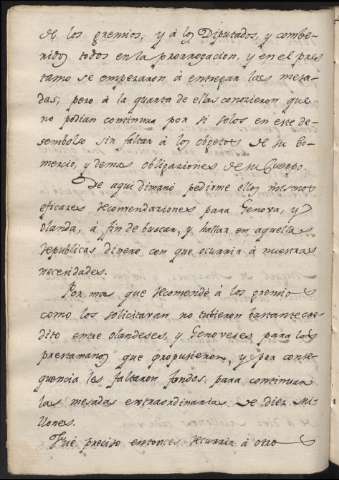 de los gremios, y à los Diputados, y combe-
nidos todos en la prorrogacion, y en el pres
tamo se empezaron à entregar las mesa-
das; pero à la quarta de ellas conocieron que
no podian continuar por si solos en este de-
sembolso sin faltar à los objetos de su Co-
mercio, y demas obligaciones de su Cuerpo.
De aqui dimanó pedirme ellos mismos
eficazes recomendaciones para Genova, y
olanda, à fin de buscar, y hallar en aquellas
Republicas dinero con que ocurrir à nuestras
necesidades.
Por mas que recomendé à los gremios
como los solicitaron no tubieron bastante cre
dito entre olandeses, y Genoveses para los
prestamos que propusieron, y por conse-
quencia les faltaron fondos, para continuar
las mesadas extraordinarias de diez mi-
llones.
Fué preciso entonces recurrir à otro